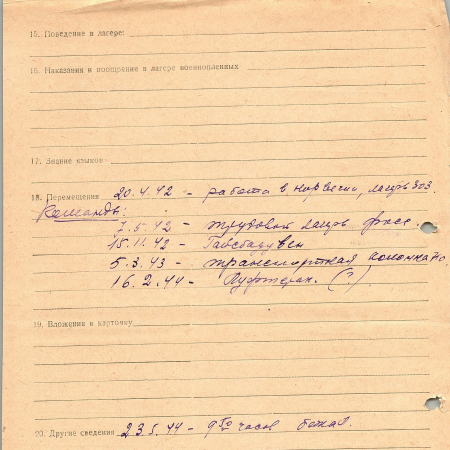 15. Поведение в лагере:
16. Наказания и поощрение в лагере военнопленных
17. Знание языков
18. Перемещения 20.4.42 - работа в Норвегии, лагерь 303.
Команды:
7.5.42 - трудовой лагерь фосс.
15.11.42 -
5.3.43 - транспортная колонна
16.2.44 - (?).
19. Вложения в карточку
20. Другие сведения 23.5.44 - 9 50 часов бежал.